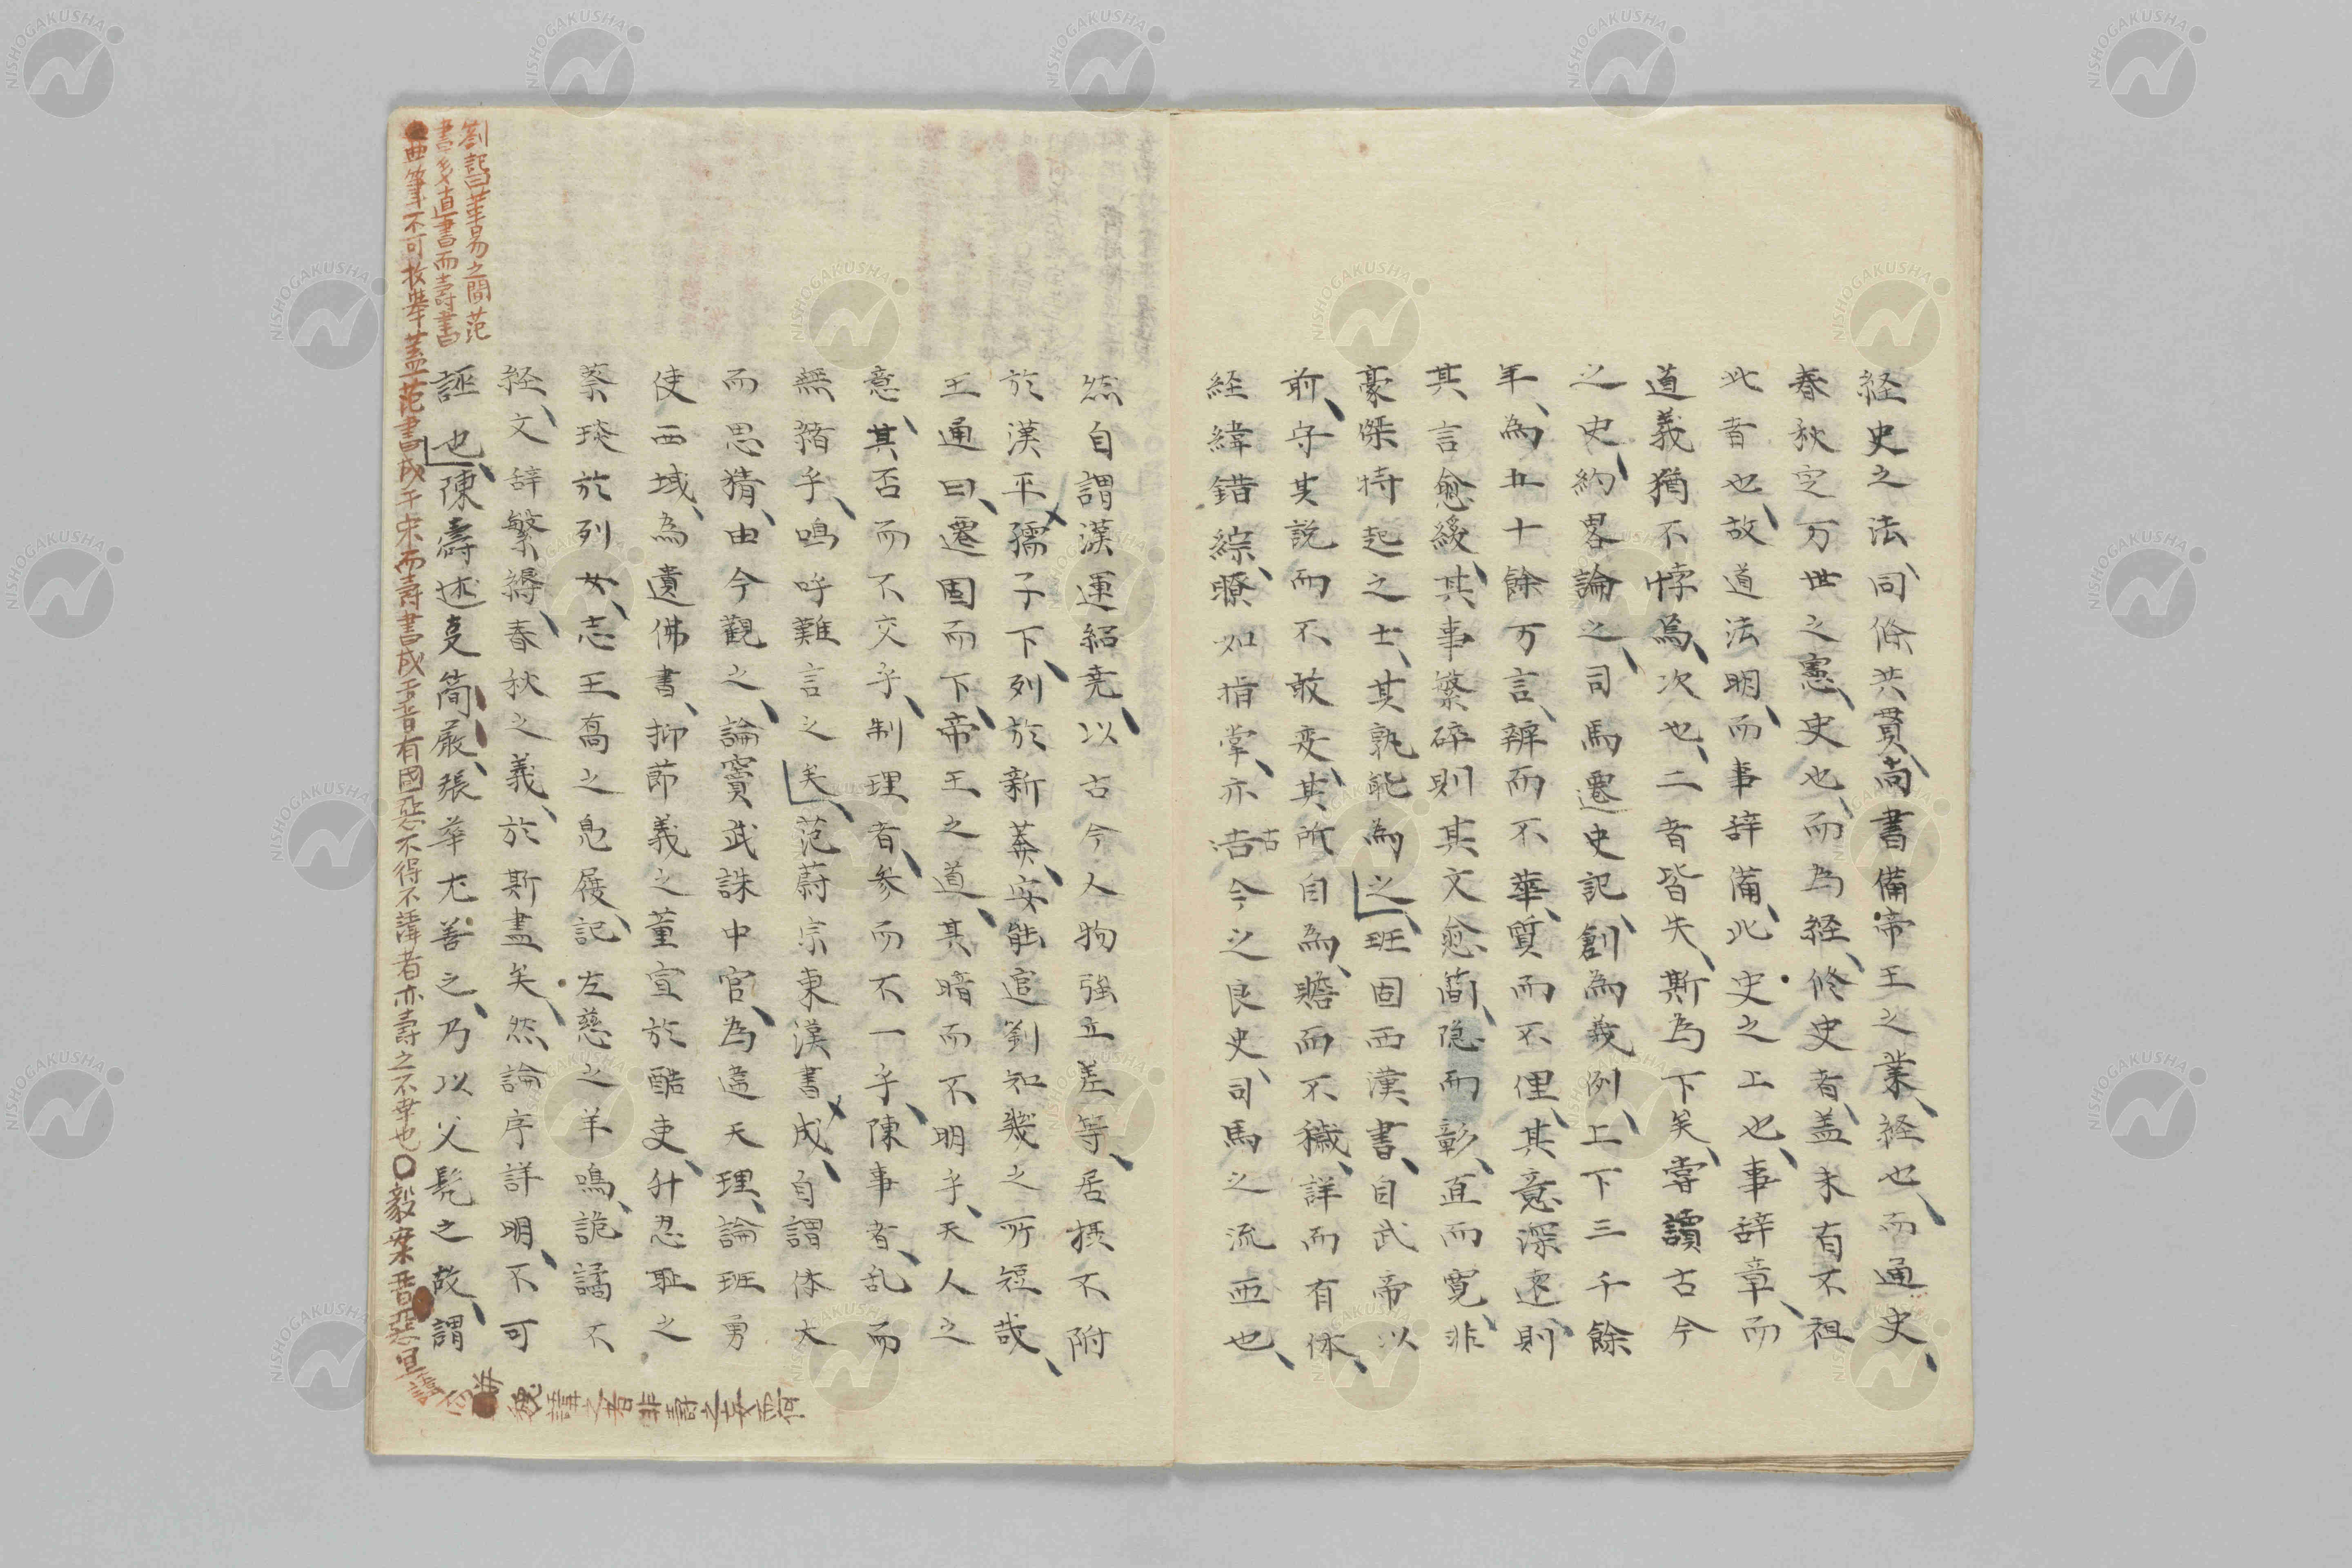 経史之法、同條共貫、尚書備帝王之業、経也、而通史、
春秋定万世之憲、史也、而為経、修史者、盖未有不祖
此者也、故道法明、而事辞備、此史之上也、事辞章、而
道義猶不悖焉、次也、二者皆失、斯為下矣、嘗讀古今
之史、約畧論之、司馬遷史記、創為義例、上下三千餘
年、為五十餘万言、辨而不華、質而不俚、其意深遠、則
其言愈緩、其事繁碎則其文愈簡、隐而彰、直而寛、非
豪傑特起之士、其孰能為之、班固西漢書、自武帝以
前、守其説而不敢変、其所自為、贍而不穢、詳而有体、
経緯錯綜、瞭如指掌、亦古今之良史、司馬之流亜也、
然自謂漢運紹尭、以古今人物強立差等、居摂不附
於漢平、孺子下、列於新莽、安能追劉知幾之所短哉、
王通曰、遷固而下、帝王之道、其暗而不明乎、天人之
意、其否而不交乎、制理者、参而不一乎、陳事者、乱而
無緒乎、嗚呼難言之矣、范蔚宗東漢書成、自謂体大
而思猜、由今觀之、論竇武誅中官、為違天理、論班勇
使西域、為遺佛書、抑節義之董宣於酷吏、升忍耻之
蔡琰於列女、志王喬之鳬履、記左慈之羊鳴、詭譎不
経、文辞繁縟、春秋之義、於斯盡矣、然論序詳明、不可
誣也、陳壽述史簡厳、張華尤善之、乃以父髡之故、謂
劉知
書多直書而壽書
曲筆不可枚挙盖范書成于宋而壽書成于晋有國惡不得不諱者亦壽之不幸也〇毅案晋惡宜諱
魏諱之者非壽之妄而何
NISHOGAKUSHA